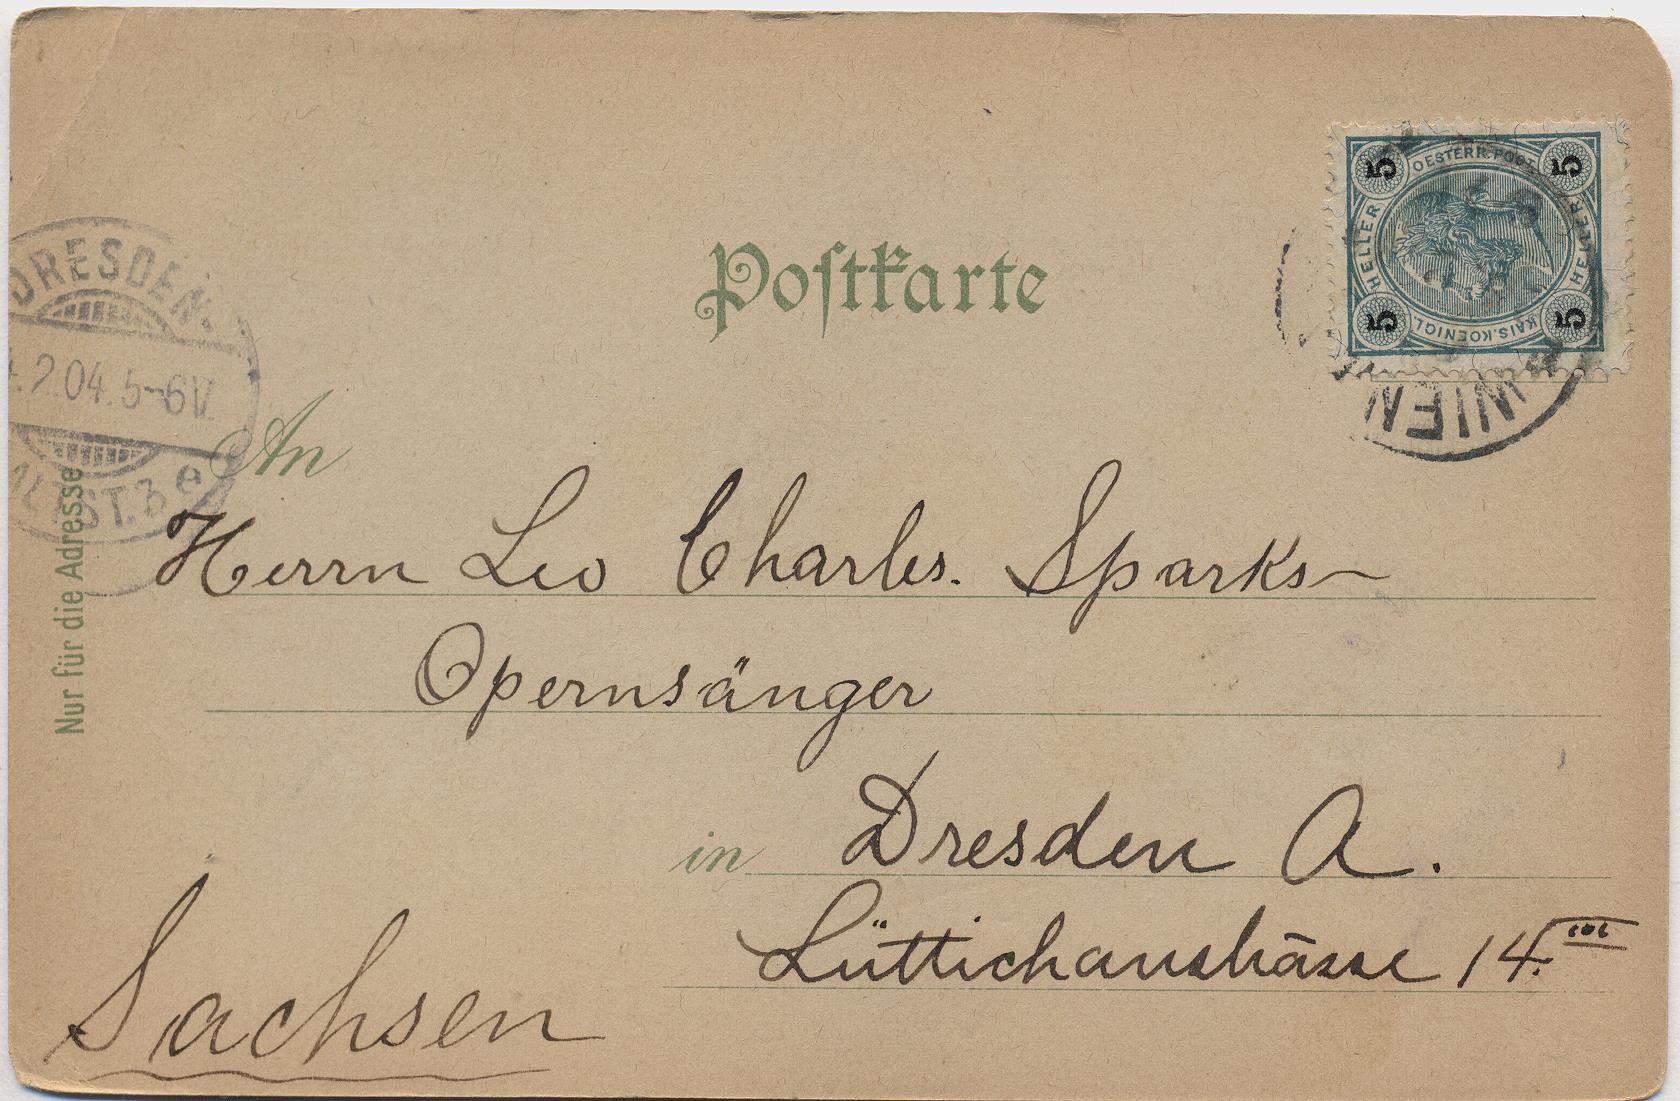 Postkarte
OESTERR. POST.
HELLER
HELLER
KAIS. KOENIGL.
5
5
5
5
WIEN
DRESDEN
.2.04.5-6N.
ALTST.3e
Nur für die Adresse
An
Herrn Leo Charles. Sparks
Opernsänger
in Dresden A.
Lüttichaustrasse 14.III
Sachsen